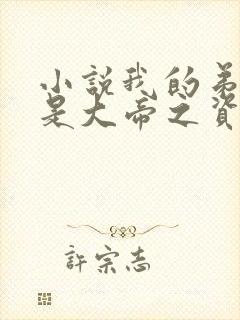 小說我的弟
是大帝之資
許宗志